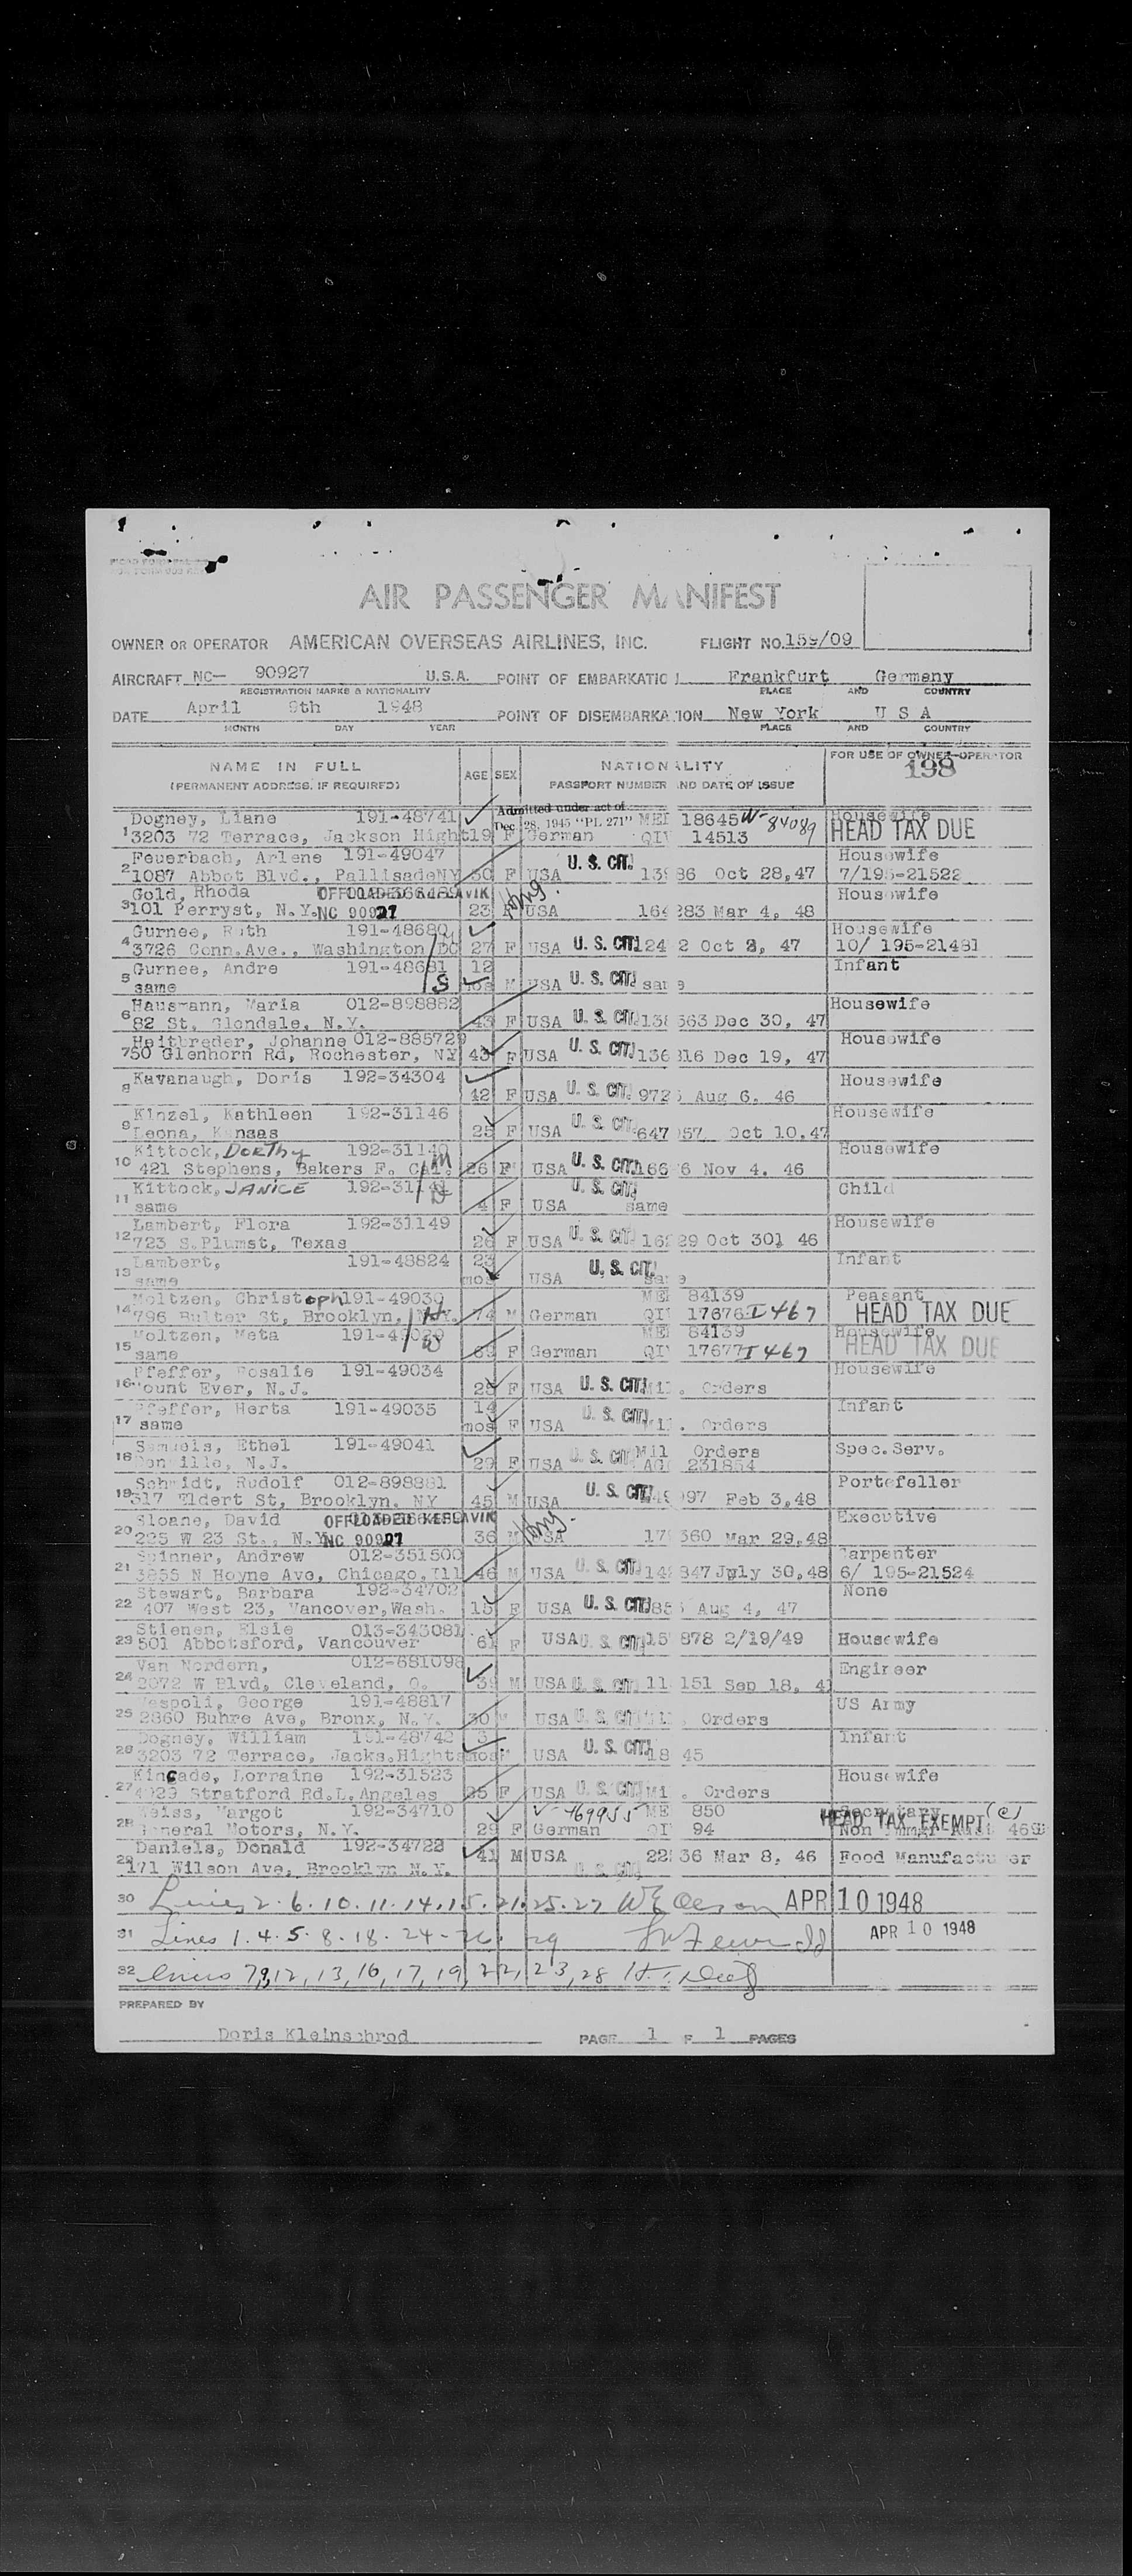 AIR PASSENGER MANIFEST
OWNER OR OPERATOR AMERICAN OVERSEAS AIRLINES, INC. FLIGHT NO. 159/09
AIRCRAFT NC— 90927 U.S.A. POINT OF EMBARKATION Frankfurt Germany
REGISTRATION MARKS & NATIONALITY PLACE AND COUNTRY
DATE April 9th 1948 POINT OF DISEMBARKATION New York U S A
MONTH DAY YEAR PLACE AND COUNTRY
NAME IN FULL AGE SEX NATIONALITY FOR USE OF OWNER-OPERATOR
(PERMANENT ADDRESS, IF REQUIRED) PASSPORT NUMBER AND DATE OF ISSUE 198
Dogney, Liane 191-48741 Admitted under act of Dec. 28, 1945 "PL 271" 18645 W-84089 Housewife
1 3203 72 Terrace, Jackson Hight 19 F German 14513 HEAD TAX DUE
Feuerbach, Arlene 191-49047 U. S. CIT. Housewife
2 1087 Abbot Blvd., PallisadeNY 30 F USA 139 86 Oct 28,47 7/195-21522
Gold, Rhoda OFFLOADED KEFLAVIK Housewife
3 101 Perryst, N.Y. NC 90927 23 F USA 164 283 Mar 4, 48
Gurnee, Ruth 191-48680 Housewife
4 3726 Conn.Ave., Washington DC 27 F USA U. S. CIT. 124 2 Oct 3, 47 10/ 195-21481
5 Gurnee, Andre 191-48681 12 Infant
same S mos M USA U. S. CIT. same
6 Hausmann, Maria 012-898882 Housewife
82 St, Glendale, N.Y. 43 F USA U. S. CIT. 138 563 Dec 30, 47
Heitbreder, Johanne 012-885729 Housewife
7 50 Glenhorn Rd, Rochester, NY 43 F USA U. S. CIT. 136 816 Dec 19, 47
8 Kavanaugh, Doris 192-34304 Housewife
42 F USA U. S. CIT. 972 5 Aug 6. 46
Kinzel, Kathleen 192-31146 Housewife
9 Leona, Kansas 25 F USA U. S. CIT. 647 57 Oct 10,47
Kittock, Dorthy 192-31140 M Housewife
10 421 Stephens, Bakers F. Cal. 26 F USA U. S. CIT. 166 6 Nov 4. 46
11 Kittock, JANICE 192-31141 U. S. CIT. Child
same 4 F USA same
Lambert, Flora 192-31149 Housewife
12 723 S.Plumst, Texas 26 F USA U. S. CIT. 168 29 Oct 30, 46
13 Lambert, 191-48824 23 U. S. CIT. Infant
same mos USA same
Moltzen, Christoph 191-49039 84139 Peasant
14 796 Bulter St, Brooklyn, N.Y. H 74 M German 17676 I 467 HEAD TAX DUE
Moltzen, Meta 84139 Housewife
15 same W 69 F German 17677 I 467 HEAD TAX DUE
Pfeffer, Rosalie 191-49034 Housewife
16 Mount Ever, N.J. 28 F USA U. S. CIT. Mil. Orders
Pfeffer, Herta 191-49035 14 Infant
17 same mos F USA U. S. CIT. Mil. Orders
Samuels, Ethel 191-49041 Mil Orders Spec. Serv.
18 N.J. 29 F USA U. S. CIT. AGO 231854
Schmidt, Rudolf 012-898881 Portefeller
19 317 Eldert St, Brooklyn. NY 45 M USA U. S. CIT. 97 Feb 3,48
Sloane, David OFFLOADED KEFLAVIK Executive
20 235 W 23 St., N.Y. NC 90927 36 M USA 17 360 Mar 29,48
Spinner, Andrew 012-351500 Carpenter
21 3855 N Hoyne Ave, Chicago,Ill 46 M USA U. S. CIT. 148 847 July 30,48 6/ 195-21524
Stewart, Barbara 192-34702 None
22 407 West 23, Vancover,Wash. 15 F USA U. S. CIT. 85 Aug 4, 47
Stienen, Elsie 013-343081
23 501 Abbotsford, Vancouver 61 F USA U. S. CIT. 15 878 2/19/49 Housewife
Van Nordern, 012-681098 Engineer
24 2072 W Blvd, Cleveland, O. 39 M USA U. S. CIT. 11 151 Sep 18, 4
Vespoli, George 191-48817 US Army
25 2860 Buhre Ave, Bronx, N.Y. 30 M USA U. S. CIT. Mil. Orders
Dogney, William 191-48742 3 Infant
26 3203 72 Terrace, Jacks.Hights mos M USA U. S. CIT. 18 45
Kincade, Lorraine 192-31523 Housewife
27 4929 Stratford Rd.L.Angeles 35 F USA U. S. CIT. Mil. Orders
Weiss, Margot 192-34710 V-469955 850 Secretary
28 General Motors, N.Y. 29 F German 94 HEAD TAX EXEMPT (e)
Daniels, Donald 192-34722
29 171 Wilson Ave, Brooklyn N.Y. 41 M USA U. S. CIT. 22 36 Mar 8, 46 Food Manufacturer
30 Lines 2.6.10.11.14.15.21.25.27 APR 10 1948
31 Lines 1.4.5.8.18.24-26. 29 APR 10 1948
32 lines 7,9,12,13,16,17,19,22,23,28
PREPARED BY
Doris Kleinschrod PAGE 1 OF 1 PAGES